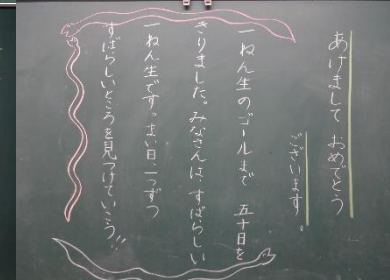 あけまして おめでとう
ございます。
一ねん生のゴールまで 五十日を
きりました。みなさんは、すばらしい
一ねん生です。まい日一つずつ
すばらしいところを見つけていこう!!